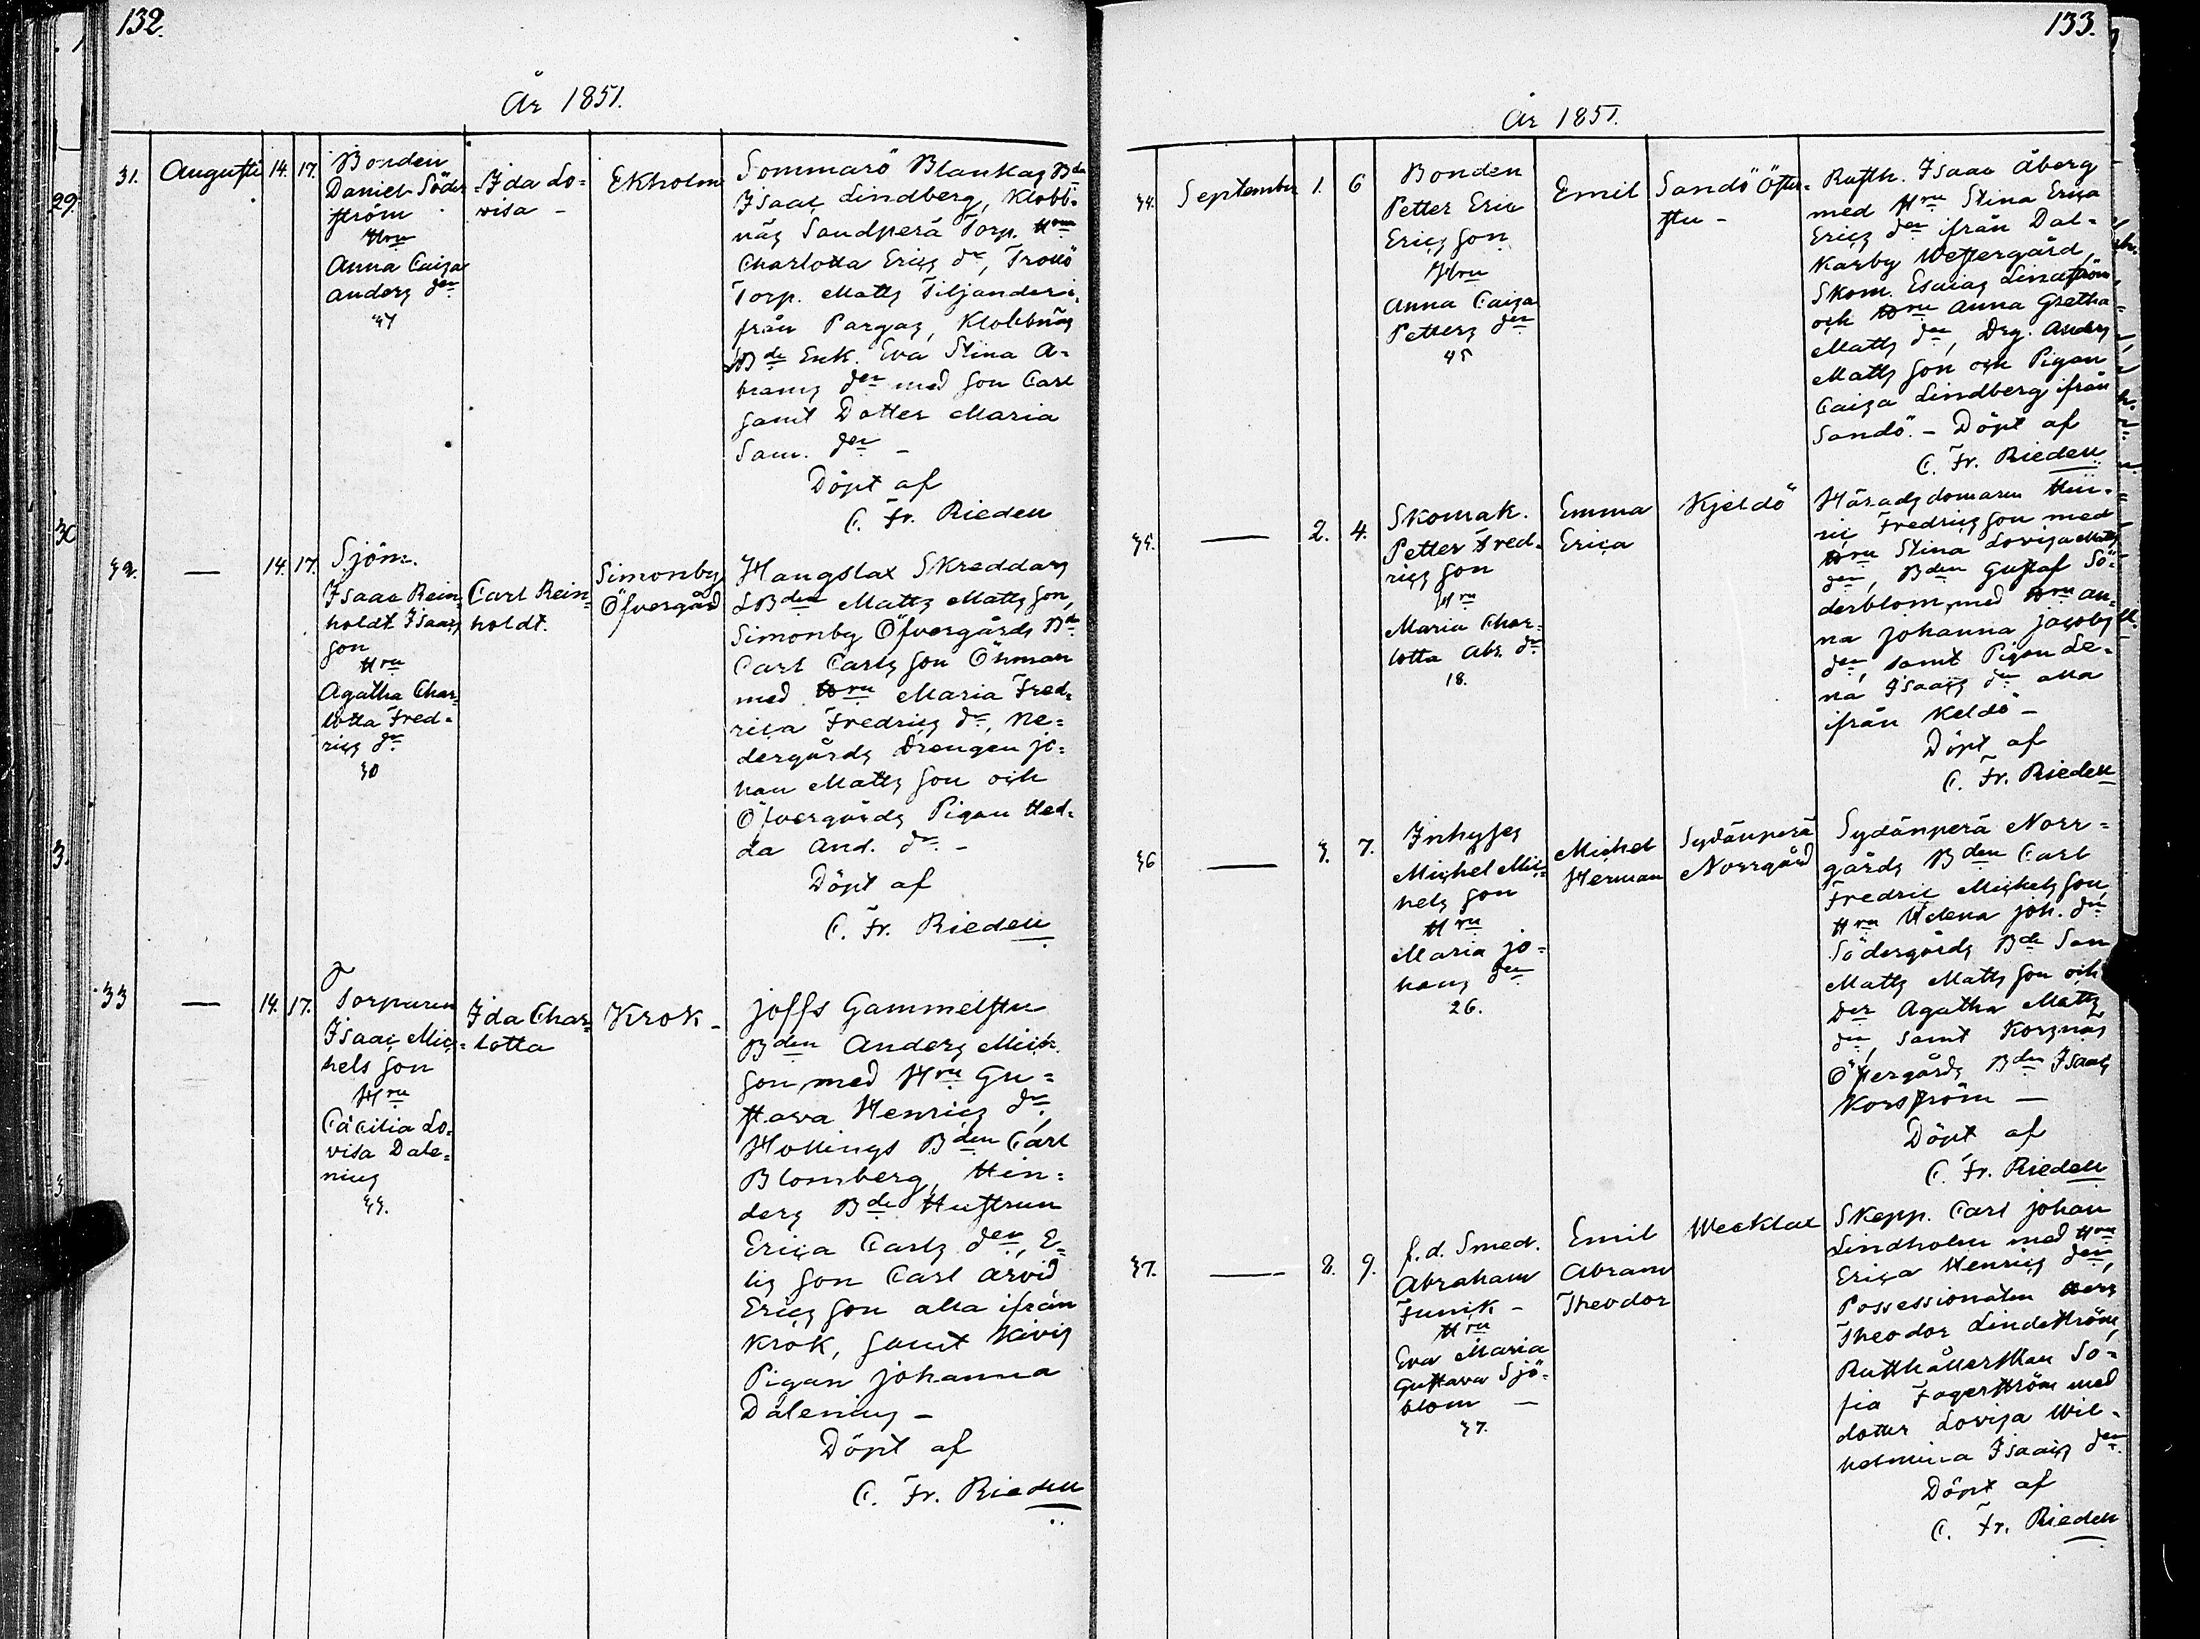 132.
År 1851.
31. Augusti 14. 17.
Bonden
Daniel Söder
ström
Hru
Anna Caisa
Anders dr
Ida Lo=
visa -
Ekholm
Sommarö Blankas Bde
Isaac Lindberg, Klobb-
näs Sandperä Torp. Hru
Charlotta Erics dr, Trollö
Torp. Matts Tiljander i
från Pargas, Klobbnäs
Bde Enk. Eva Stina A=
brams der med son Carl
samt Dotter Maria
Sam. der -
Döpt af
C. Fr. Rieden
32. — 14. 17.
Sjöm.
Isaac Rein=
holdt Isaacs
son
Hru
Agatha Char=
lotta Fred=
rics dr
30
Carl Rein=
holdt.
Simonby
Öfvergård
Haugslax Skreddars
LBden Matts Matts son,
Simonby Öfvergårds Bde
Carl Carls son Öhman
med Hru Maria Fred=
rica Fredrics dr, Ne=
dergårds Drengen jo=
han Matts son och
Öfvergårds Pigan Hed=
da And. dr. -
Döpt af
C. Fr. Rieden
33 — 14. 17.
Torparen
Isaac Mic=
hels son
Hru
Cäcilia Lo=
visa Dale=
nius
33.
Ida Char=
lotta
Krok -
joffs Gammelstu
Bden Anders Mich.
son med Hru Gu=
stava Henrics dr,
Hollings Bden Carl
Blomberg, Hin=
ders Bde Hustrun
Erica Carls der, E=
lis son Carl Arvid
Erics son alla ifrån
Krok, samt
Pigan johanna
Dalenius -
Döpt af
C. Fr. Rieden
133.
År 1851.
34. September 1. 6
Bonden
Petter Eric
Erics son
Hru
Anna Caisa
Petters der
45
Emil
Sandö Öster=
stu -
Rusth. Isaac Åberg
med Hru Stina Erica
Erics der ifrån Dal=
karby Westergård,
Skom. Esaias Lindström
och Hru Anna Gretha
Matts dr, Drg. Anders
Matts son och Pigan
Caisa Lindberg ifrån
Sandö. - Döpt af
C. Fr. Rieden
35. — 2. 4.
Skomak.
Petter Fred=
rics son
Hru
Maria Char=
lotta Abr. dr
18.
Emma
Erica
Kjeldö
Häradsdomaren Hen=
ric Fredrics son med
Hru Stina Lovisa Matts
der, Bden Gustaf Sö=
derblom med Hru An=
na johanna jacobs
der, samt Pigan Le=
na Isaacs dr alla
ifrån Keldö -
Döpt af
C. Fr. Rieden
36 — 3. 7.
Inhyses
Michel Mic=
hels son
Hru
Maria jo=
hans der
26.
Michel
Herman
Sydänperä
Norrgård
Sydänperä Norr=
gårds Bden Carl
Fredric Michels son,
Hru Helena joh. dr
Södergårds Bde Son
Matts Matts son och
Der Agatha Matts
der, samt Korsnäs
Öfvergårds Bden Isaac
Korsström —
Döpt af
C. Fr. Rieden
37. — 8. 9.
f. d. Smed.
Abraham
Funik -
Hru
Eva Maria
Gustava Sjö=
blom —
37.
Emil
Abram
Theodor
Wecklax
Skepp. Carl johan
Lindholm med Hru
Erica Henrics der,
Possessionaten
Theodor Lindström,
Rusthållerskan So=
fia Fagerström med
dotter Lovisa Wil=
helmina Isaacs der
Döpt af
C. Fr. Rieden